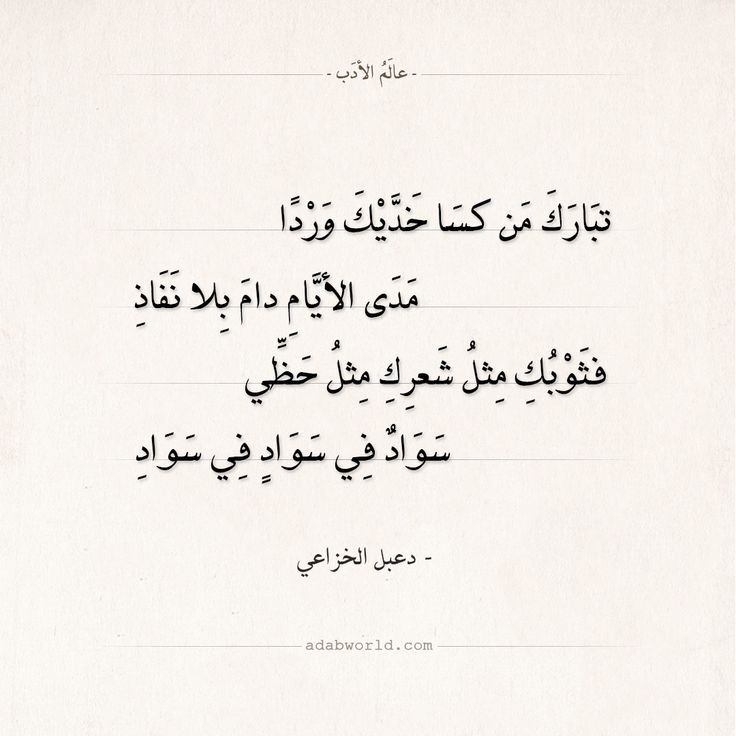 - عالَمُ الأدَب -
تبَارَكَ مَن كسَا خَدَّيْكَ وَرْدًا
مَدَى الأيَّامِ دامَ بِلا نَفَاذِ
فثَوْبُكِ مِثلُ شَعرِكِ مِثلُ حَظِّي
سَوَادٌ فِي سَوَادٍ فِي سَوَادِ
- دعبل الخزاعي
adabworld.com